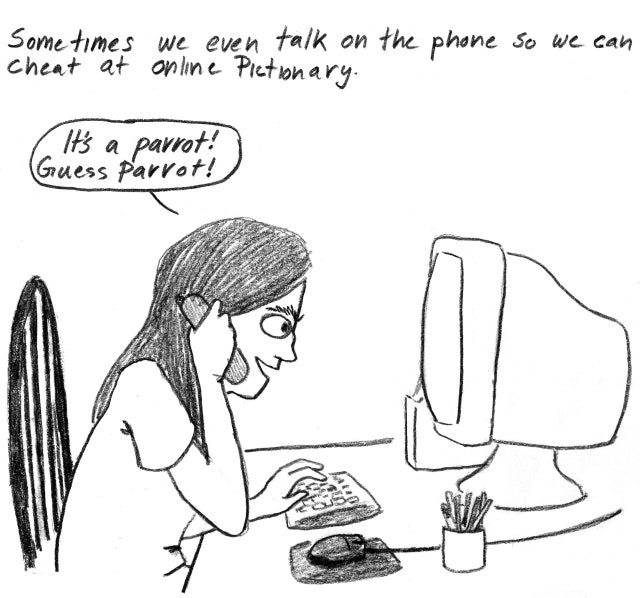 Sometimes we even talk on the phone so we can
cheat at online Pictionary.
It's a parrot!
Guess Parrot!